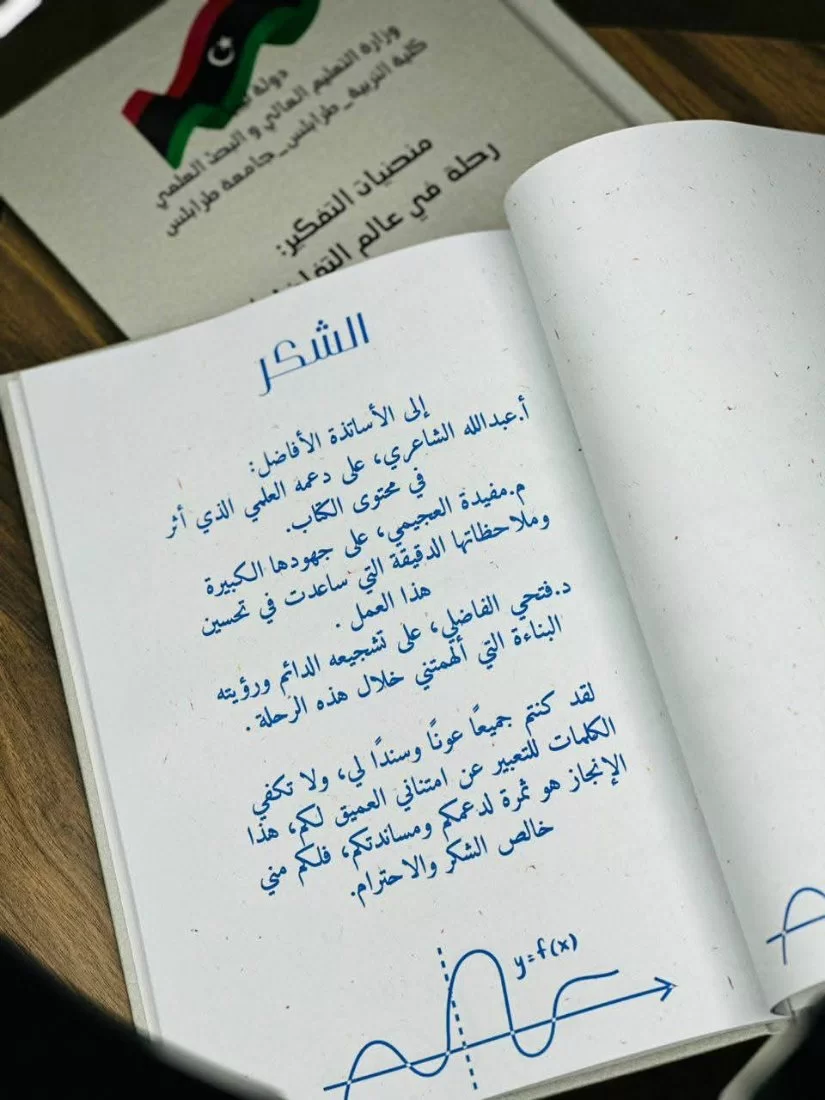 دولة
وزارة التعليم العالي و البحث العلمي
كلية التربية_طرابلس_جامعة طرابلس
منحنيات التفكير:
رحلة في عالم
الشكر
إلى الأساتذة الأفاضل:
أ.عبدالله الشاعري، على دعمه العلمي الذي أثر
في محتوى الكتاب.
م.مفيدة العجيمي، على جهودها الكبيرة
وملاحظاتها الدقيقة التي ساعدت في تحسين
هذا العمل .
د.فتحي الفاضلي، على تشجيعه الدائم ورؤيته
البناءة التي ألهمتني خلال هذه الرحلة .
لقد كنتم جميعًا عونًا وسندًا لي، ولا تكفي
الكلمات للتعبير عن امتناني العميق لكم، هذا
الإنجاز هو ثمرة لدعمكم ومساندتكم، فلكم مني
خالص الشكر والاحترام.
y=f(x)